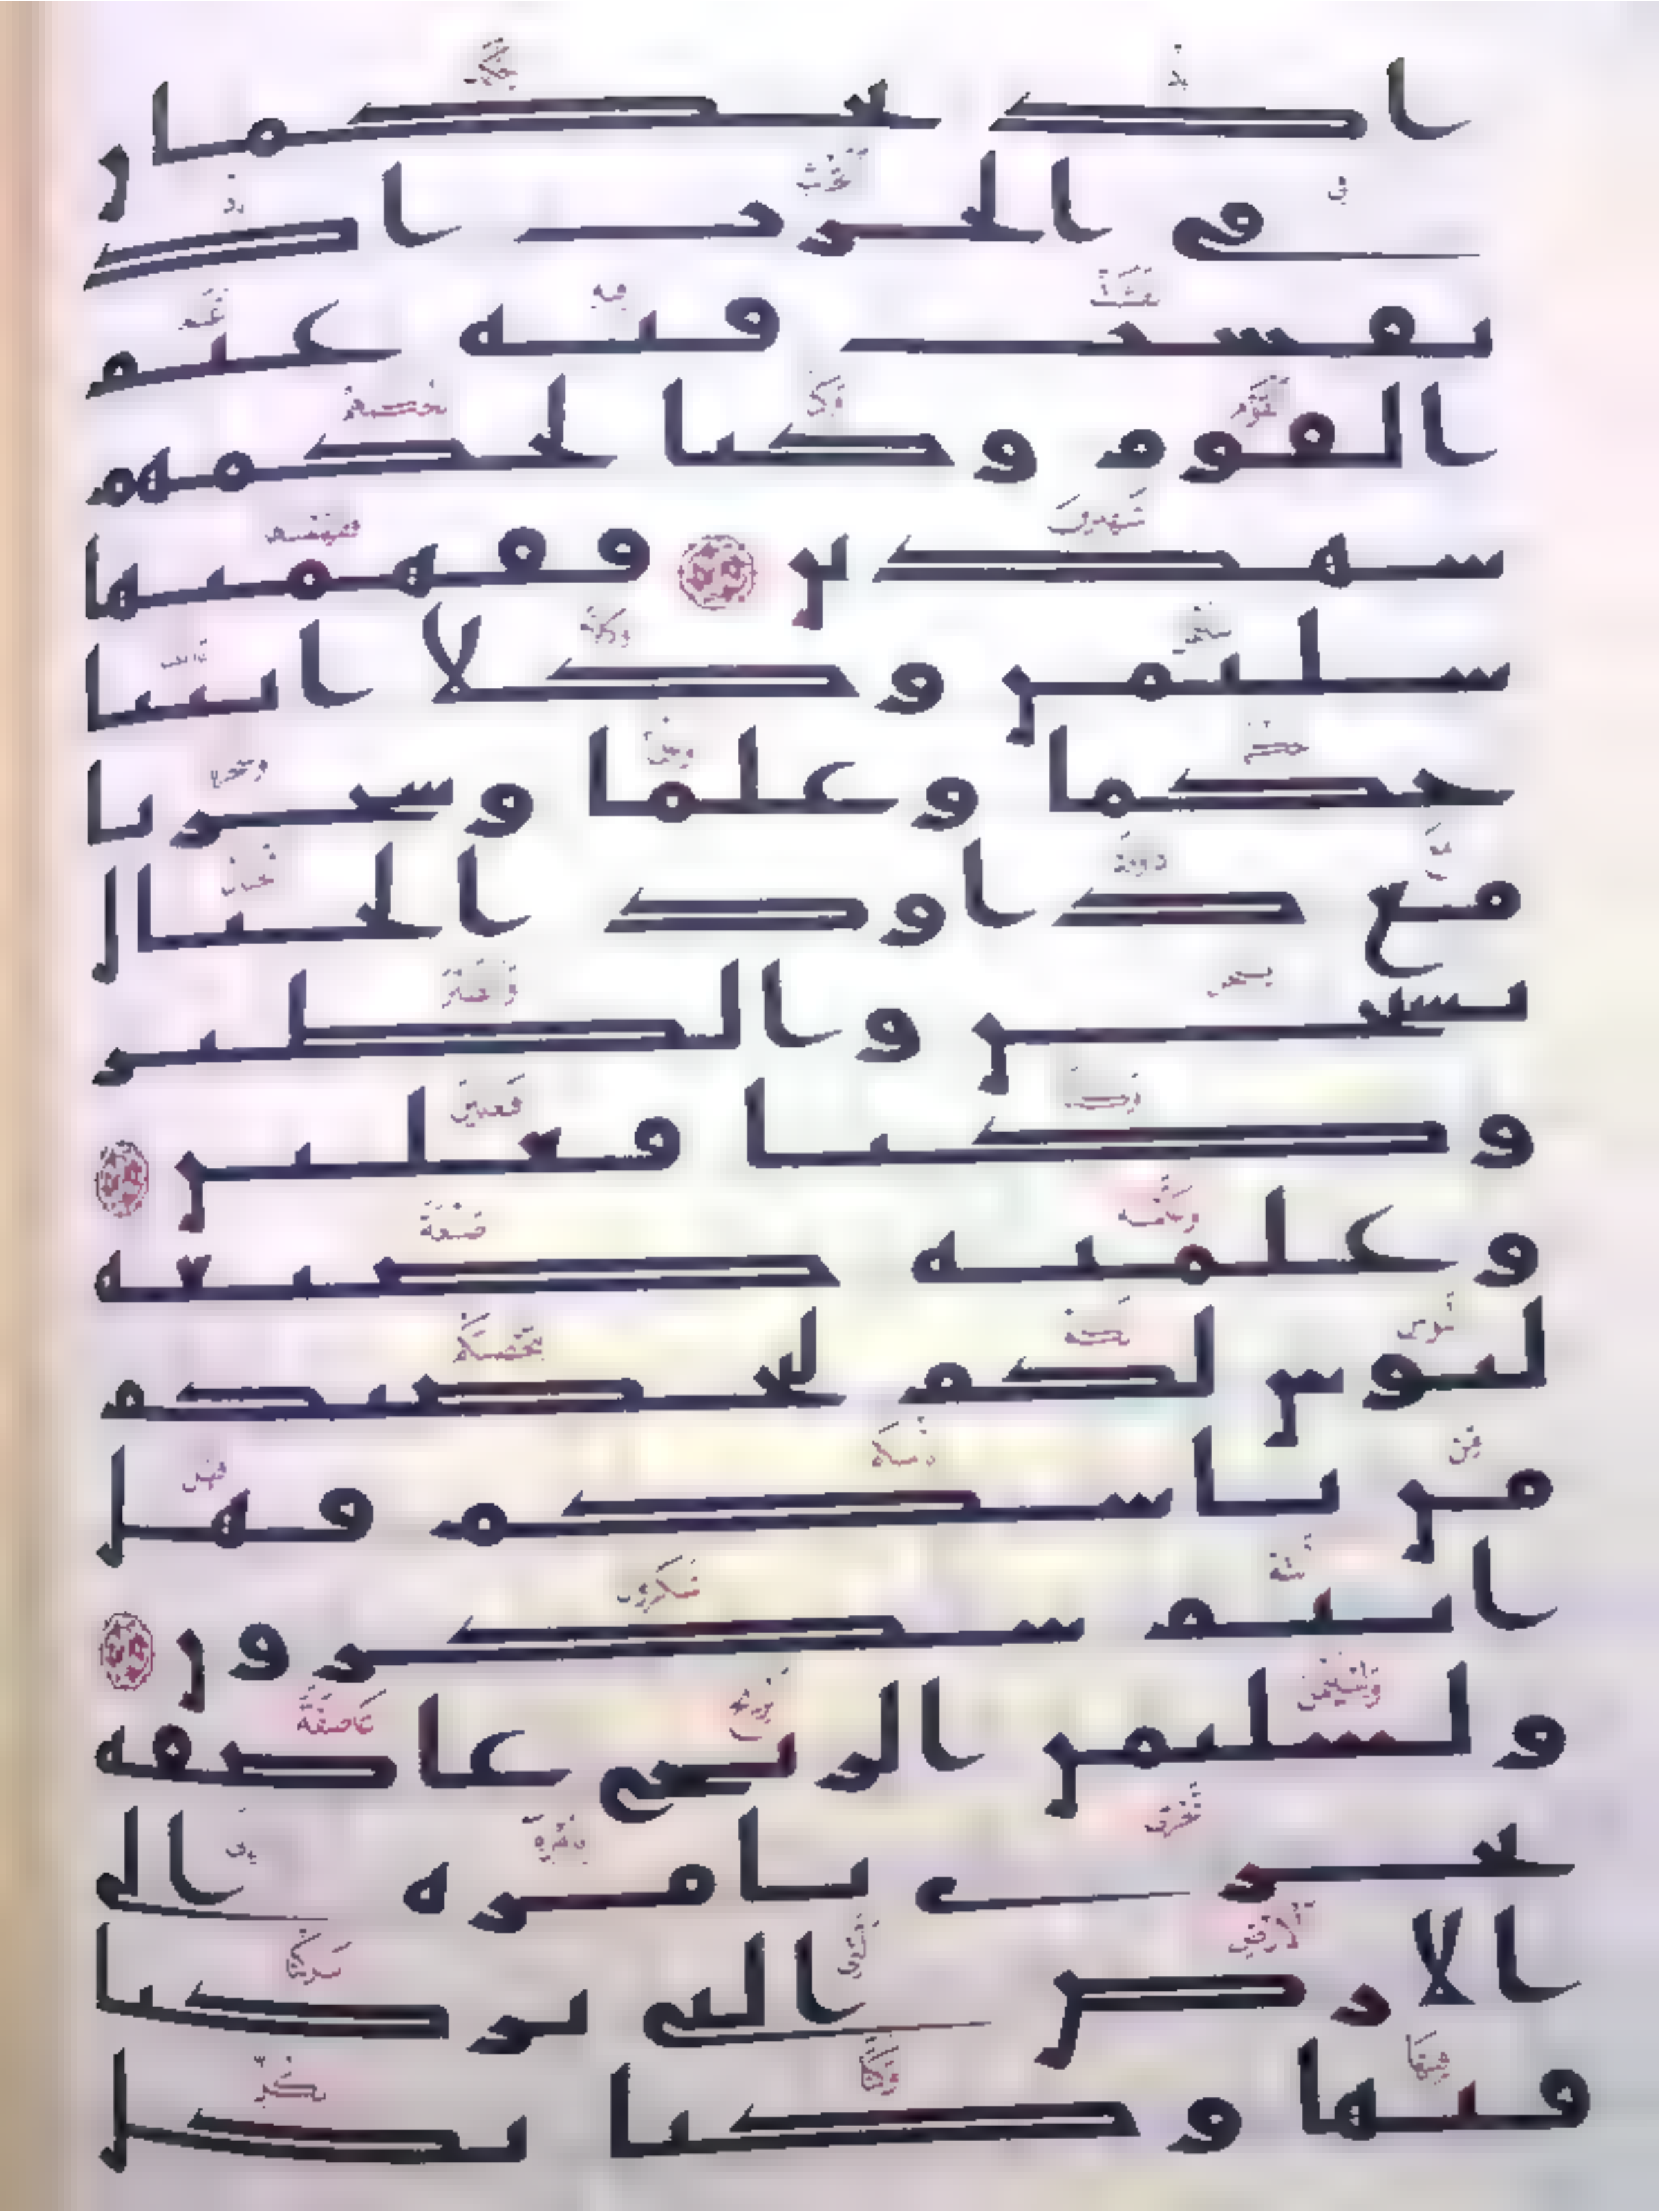 اذ يحكمان
في الحرث اذ
نفشت فيه غنم
القوم وكنا لحكمهم
شهدين ففهمنها
سليمن وكلا اتينا
حكما وعلما وسخرنا
مع داود الجبال
يسبحن والطير
وكنا فعلين
وعلمنه صنعة
لبوس لكم لتحصنكم
من باسكم فهل
انتم شكرون
ولسليمن الريح عاصفة
تجري بامره الى
الارض التي بركنا
فيها وكنا بكل